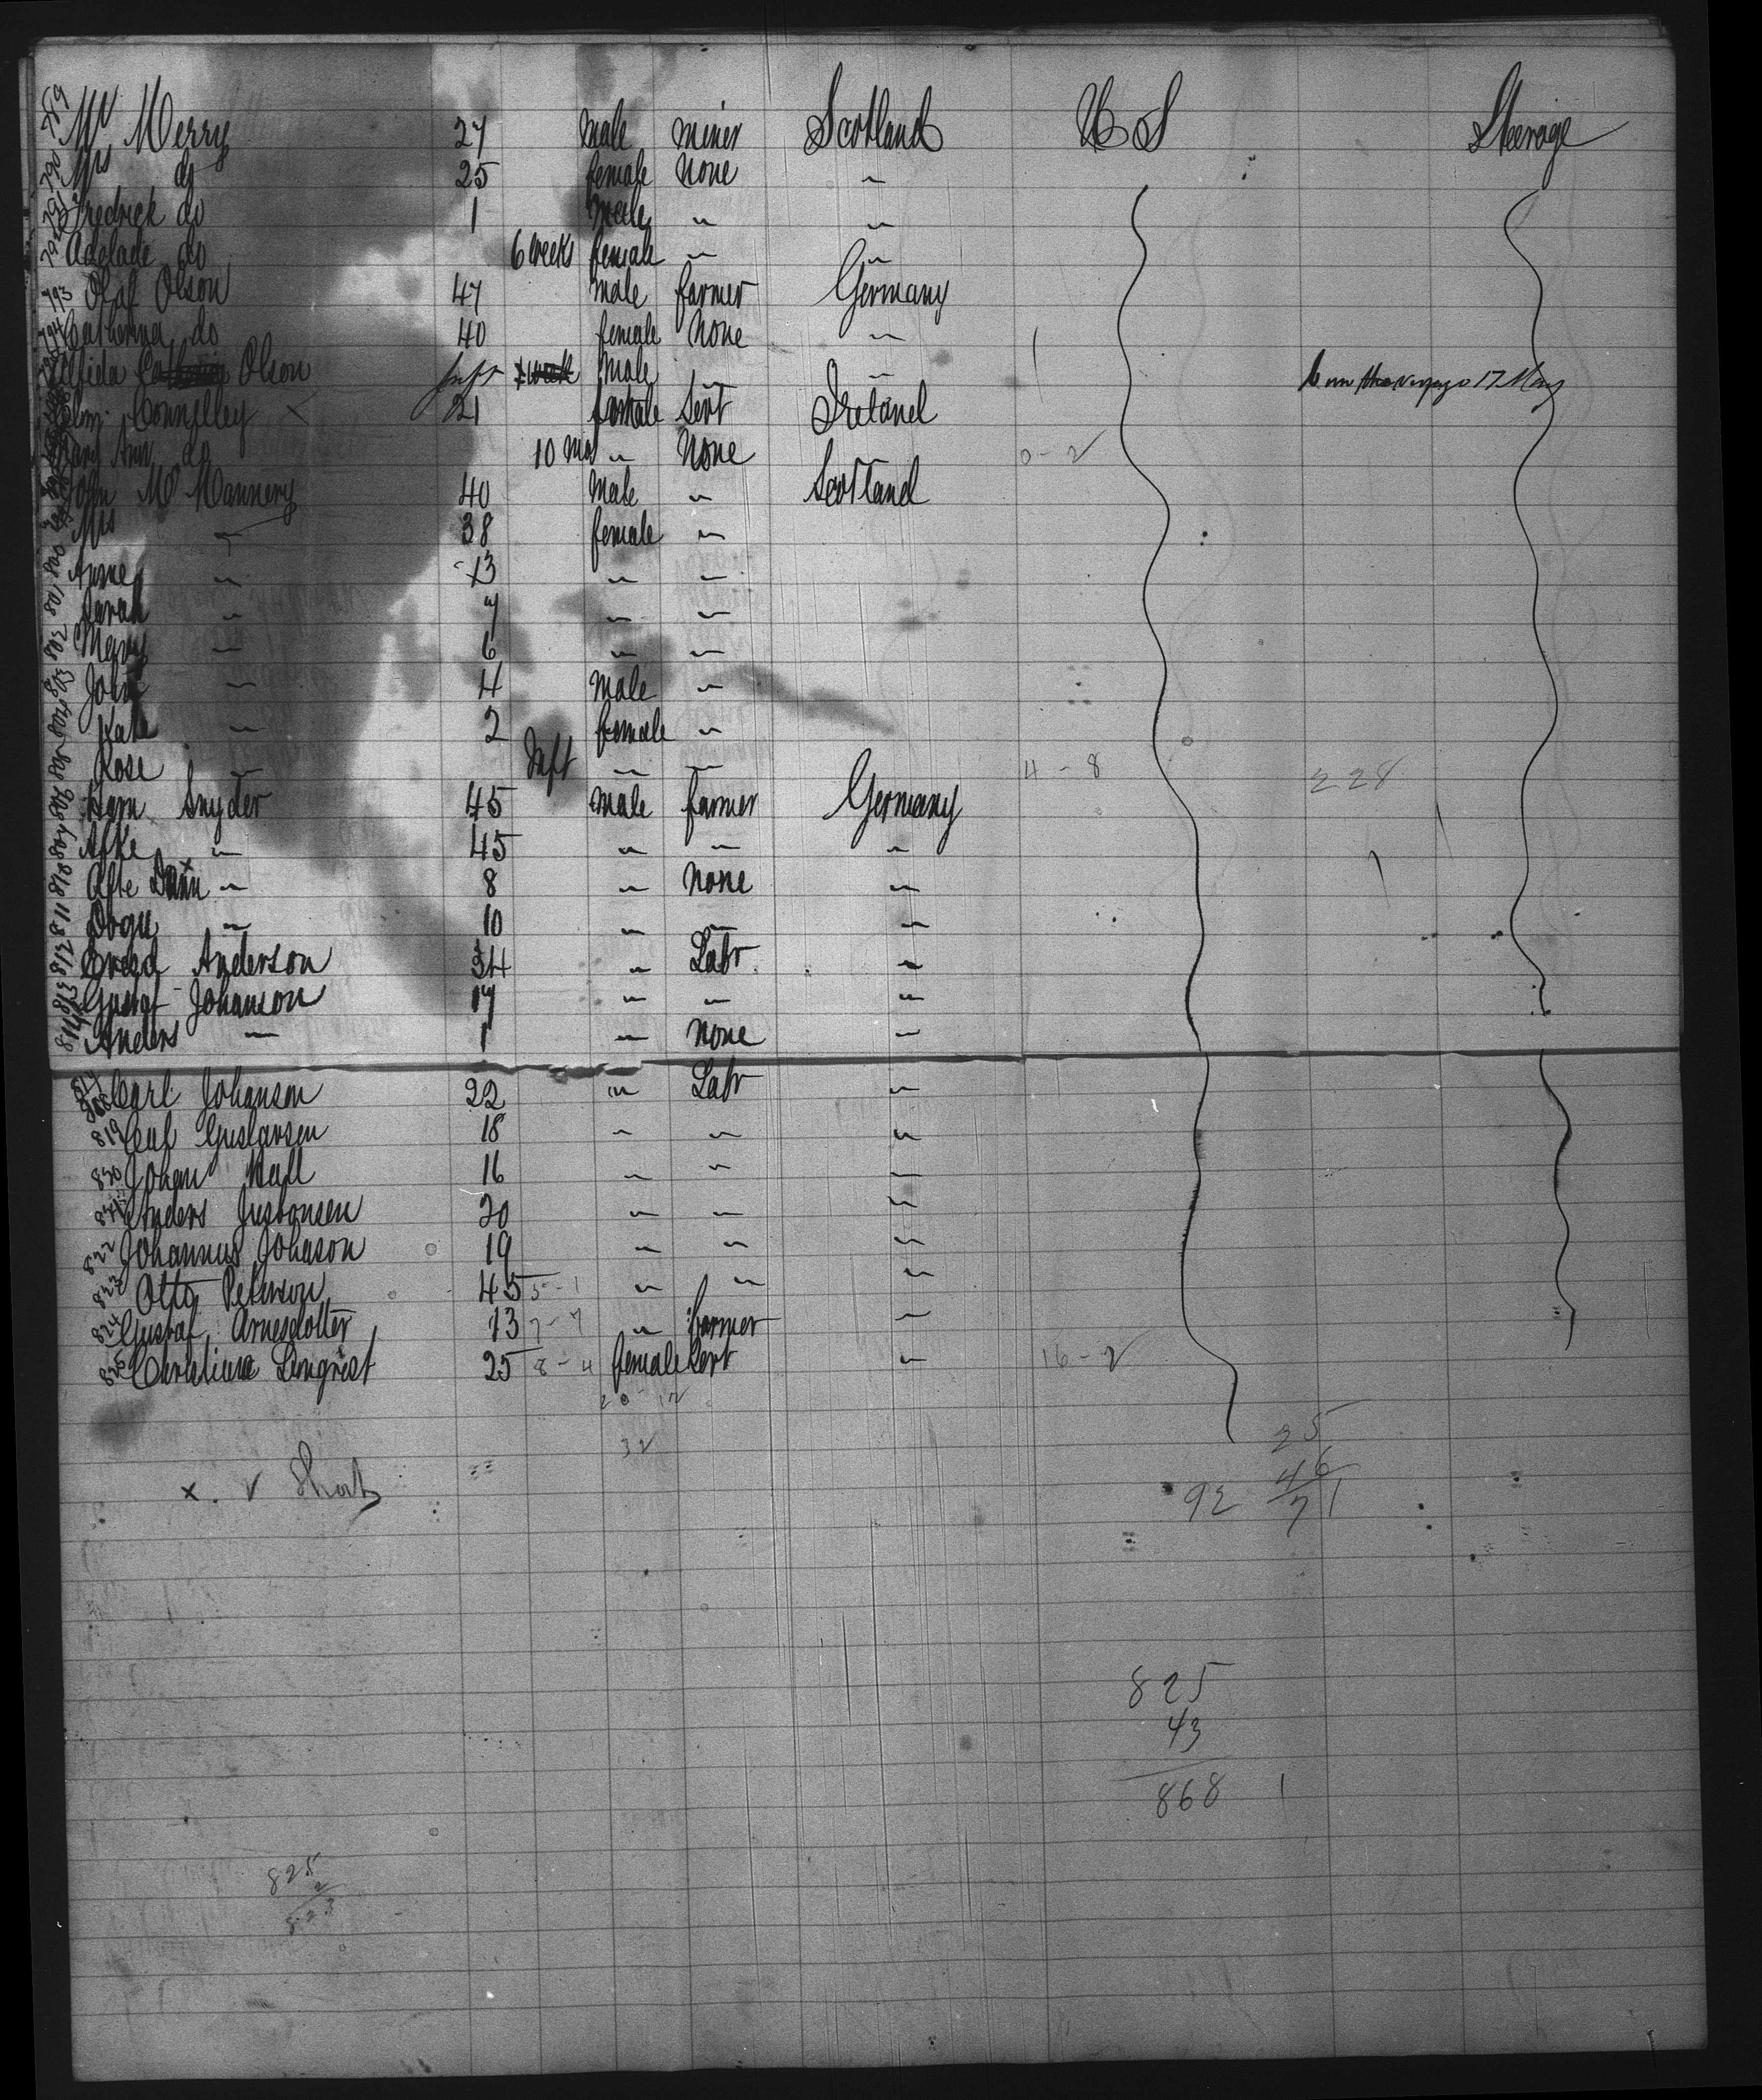 789 Mr Merry 27 male miner Scotland U S Steerage
790 Mrs do 25 female none "
791 Fredrick do 1 male " "
792 Adelade do 6 weeks female " "
793 Olaf Olson 47 male farmer Germany
794 Catherina do 40 female none "
Alfida Olson Inft male " 17 May
Connelley × 21 female Servt Ireland
Mary Ann do 10 Mos " none 0-2
John Mc Mannery 40 male " Scotland
Mrs " 38 female "
800 Anne " 13 " "
801 Sarah " 7 " "
802 Mary " 6 " "
803 John " 4 male "
804 Kate " 2 female "
805 Rose " Inft " " 4-8 228
Harn Snyder 45 male farmer Germany
Afke " 45 " " "
810 Afte " 8 " none "
811 " 10 " " "
812 Anderson 34 " Labr "
813 Gustaf Johanson 17 " " "
814 Anders " 1 " none "
Carl Johanson 22 " Labr "
819 Gustavsen 18 " " "
820 Johan Nall 16 " " "
821 Anders 20 " " "
822 Johannus Johason 19 " " "
823 Otto Peterson 45 5-1 " " "
824 Gustaf Arnesdotter 13 7-7 " farmer "
825 Christiana Lingrist 25 8-4 female Servt " 16-2
20-12
32
25
46
71
92
x. v Short
825
43
868
825
2
823